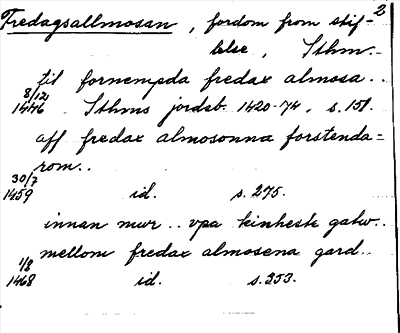 2
Fredagsallmosan, fordom from stif-
telse, Sthm.
til fornempda fredax almosa..
8/12 1446 Sthms jordeb. 1420-74, s. 151.
aff fredax almosonna forstenda=
rom..
30/7 1459 id. s. 275.
innan mwr.. vpa kinheste gatw..
mellom fredax almosena gard..
1/8 1468 id. s. 353.